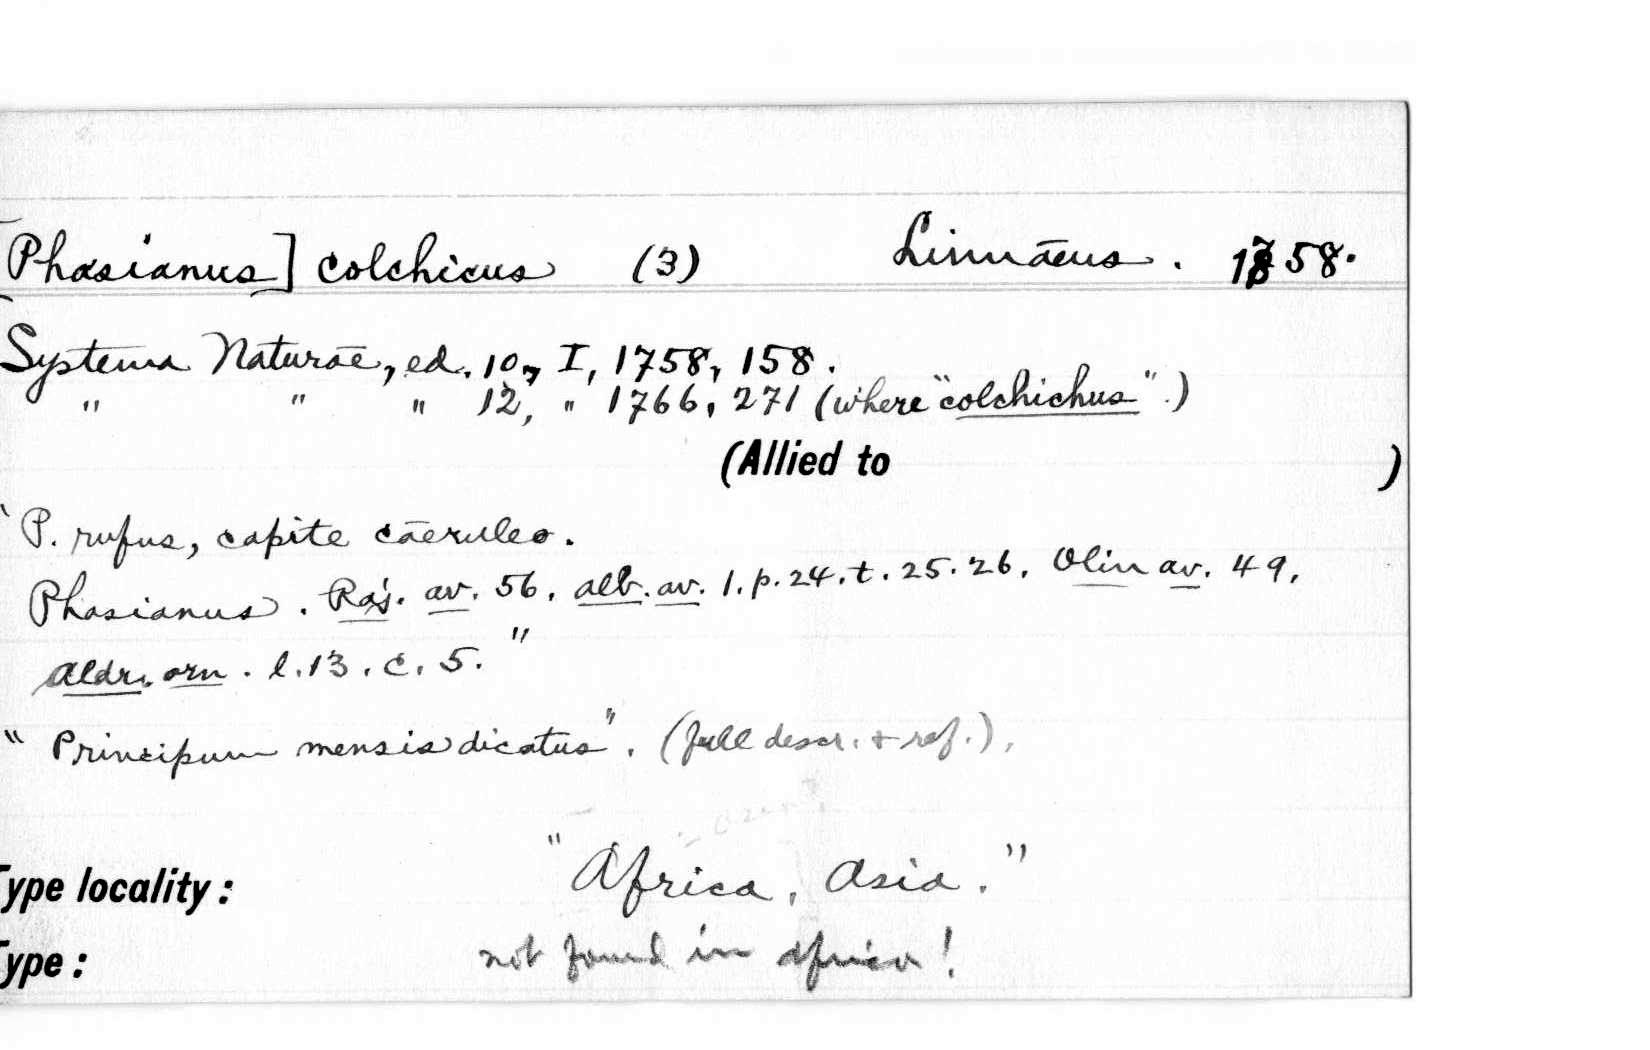 [Phasianus] colchicus (3) Linnaeus. 1758.
Systema Naturae, ed. 10, I, 1758, 158.
" " " 12, " 1766, 271 (where "colchichus".)
(Allied to )
"P. rufus, capite caeruleo.
Phasianus. Raj. av. 56. alb. av. 1. p. 24. t. 25. 26. Olin av. 49.
Aldr. orn. l. 13. c. 5."
"Principum mensis dicatus". (full descr. + ref.).
Type locality: "Africa, Asia."
Type: not found in Africa!